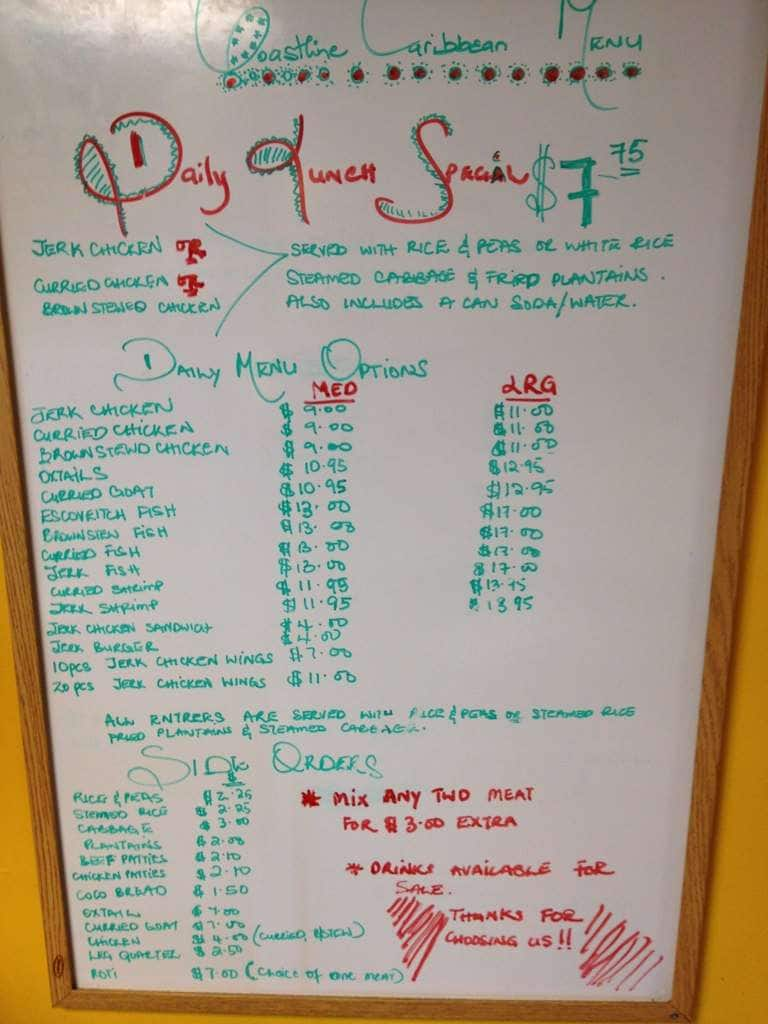 Coastline Caribbean Menu
Daily Lunch Special $7.75
JERK CHICKEN OR
CURRIED CHICKEN OR
BROWN STEWED CHICKEN
SERVED WITH RICE & PEAS OR WHITE RICE
STEAMED CABBAGE & FRIED PLANTAINS.
ALSO INCLUDES A CAN SODA/WATER.
Daily Menu Options
MED LRG
JERK CHICKEN $ 9.00 $11.00
CURRIED CHICKEN $ 9.00 $11.00
BROWNSTEWD CHICKEN $ 9.00 $11.00
OXTAILS $ 10.95 $12.95
CURRIED GOAT $10.95 $12.95
ESCOVEITCH FISH $13.00 $17.00
BROWNSTEW FISH $13.00 $17.00
CURRIED FISH $13.00 $17.00
JERK FISH $13.00 $17.00
CURRIED SHRIMP $11.95 $13.95
JERK SHRIMP $11.95 $13.95
JERK CHICKEN SANDWICH $4.00
JERK BURGER $4.00
10pcs JERK CHICKEN WINGS $7.00
20 pcs JERK CHICKEN WINGS $11.00
ALL ENTREES ARE SERVED WITH RICE & PEAS OR STEAMED RICE
FRIED PLANTAINS & STEAMED CABBAGE.
Side Orders
$
RICE & PEAS $2.25
STEAMED RICE $2.25
CABBAGE $3.00
PLANTAINS $2.00
BEEF PATTIES $2.10
CHICKEN PATTIES $2.10
COCO BREAD $1.50
OXTAIL $7.00
CURRIED GOAT $7.00
CHICKEN $4.00 (CURRIED, B/STEW)
LEG QUARTER $2.50
ROTI $7.00 (CHOICE OF ONE MEAT)
* MIX ANY TWO MEAT
FOR $3.00 EXTRA
* DRINKS AVAILABLE FOR
SALE.
THANKS FOR
CHOOSING US!!